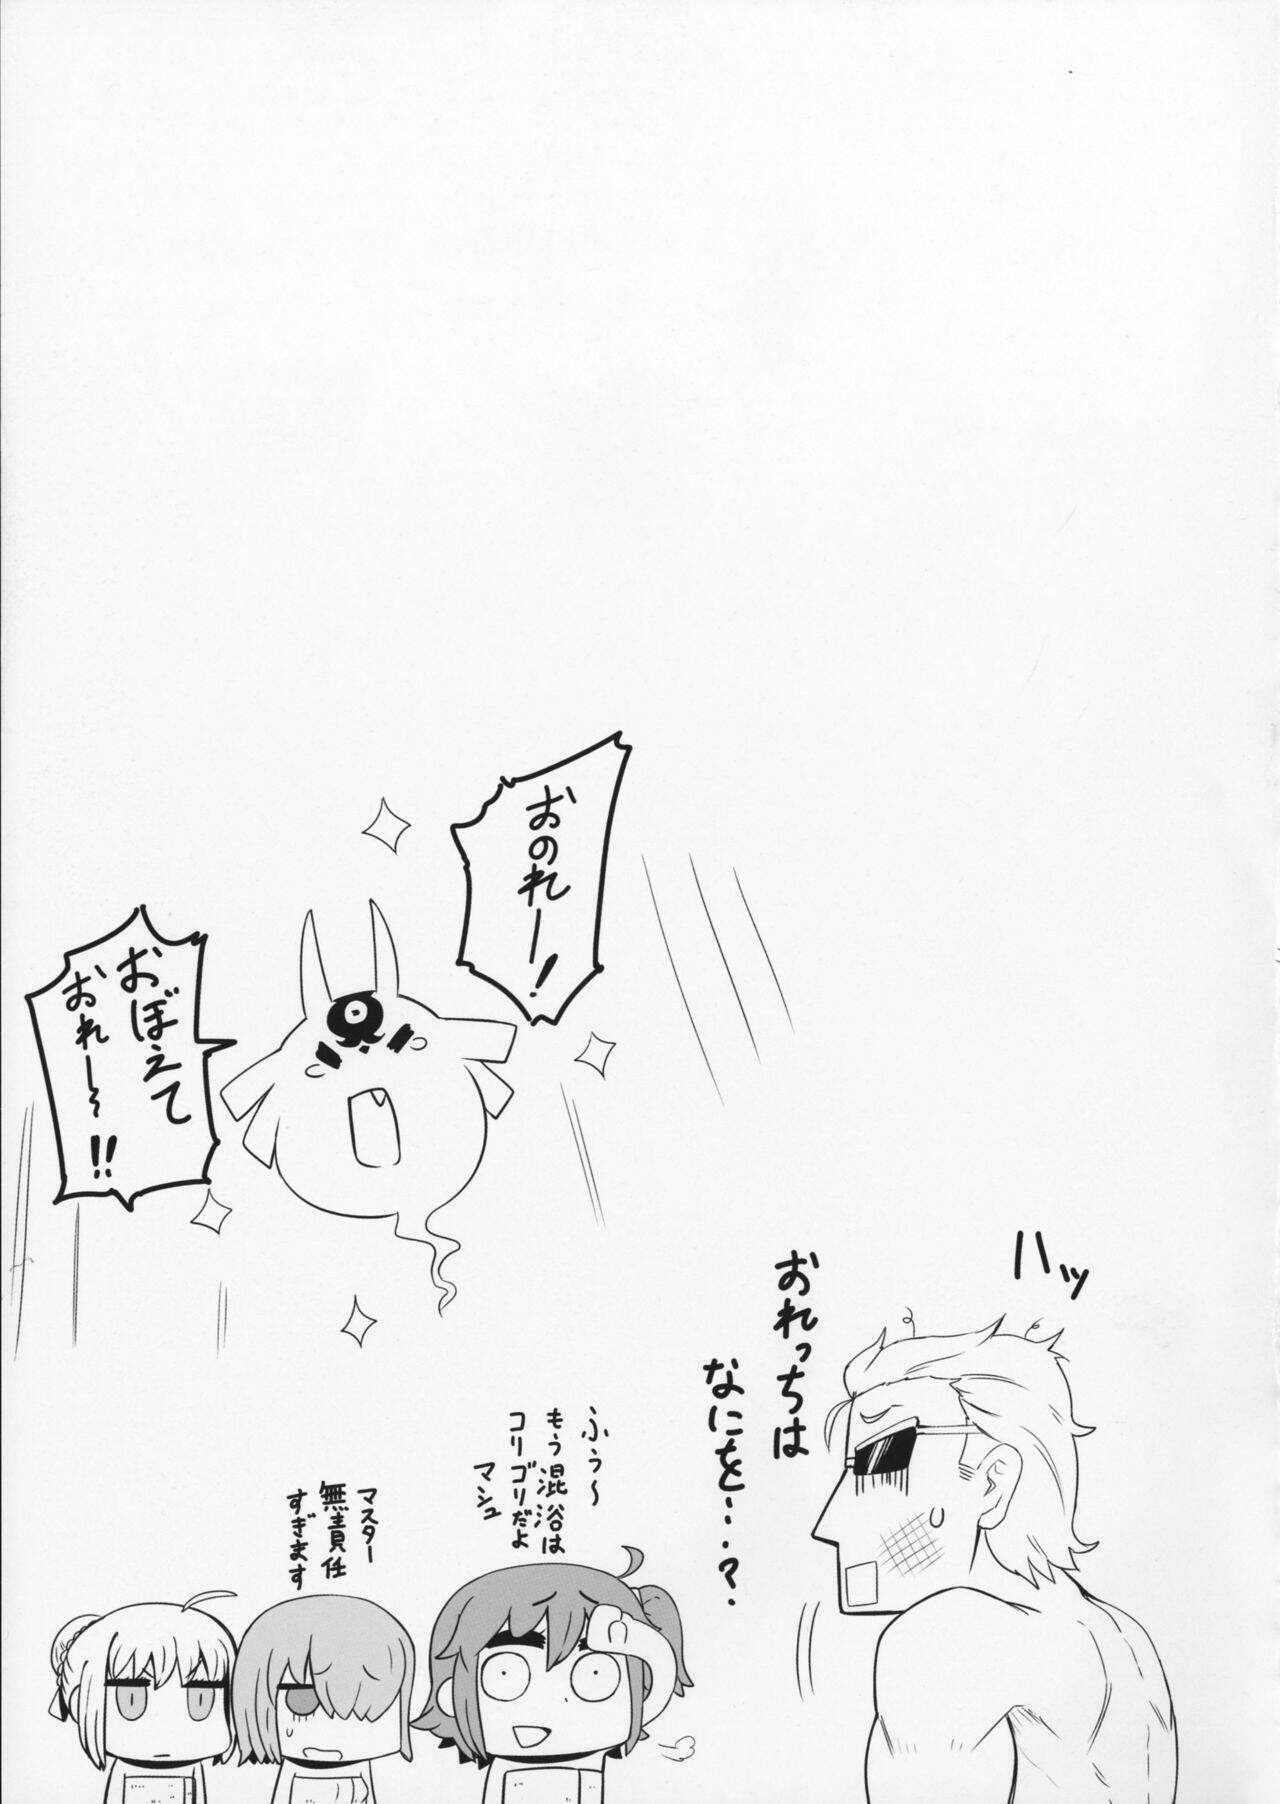 おのれー!
おぼえて
おれー〜!!
ハッ
おれっちは
なにを…?
ふぅ〜
もう混浴は
コリゴリだよ
マシュ
マスター
無責任
すぎます